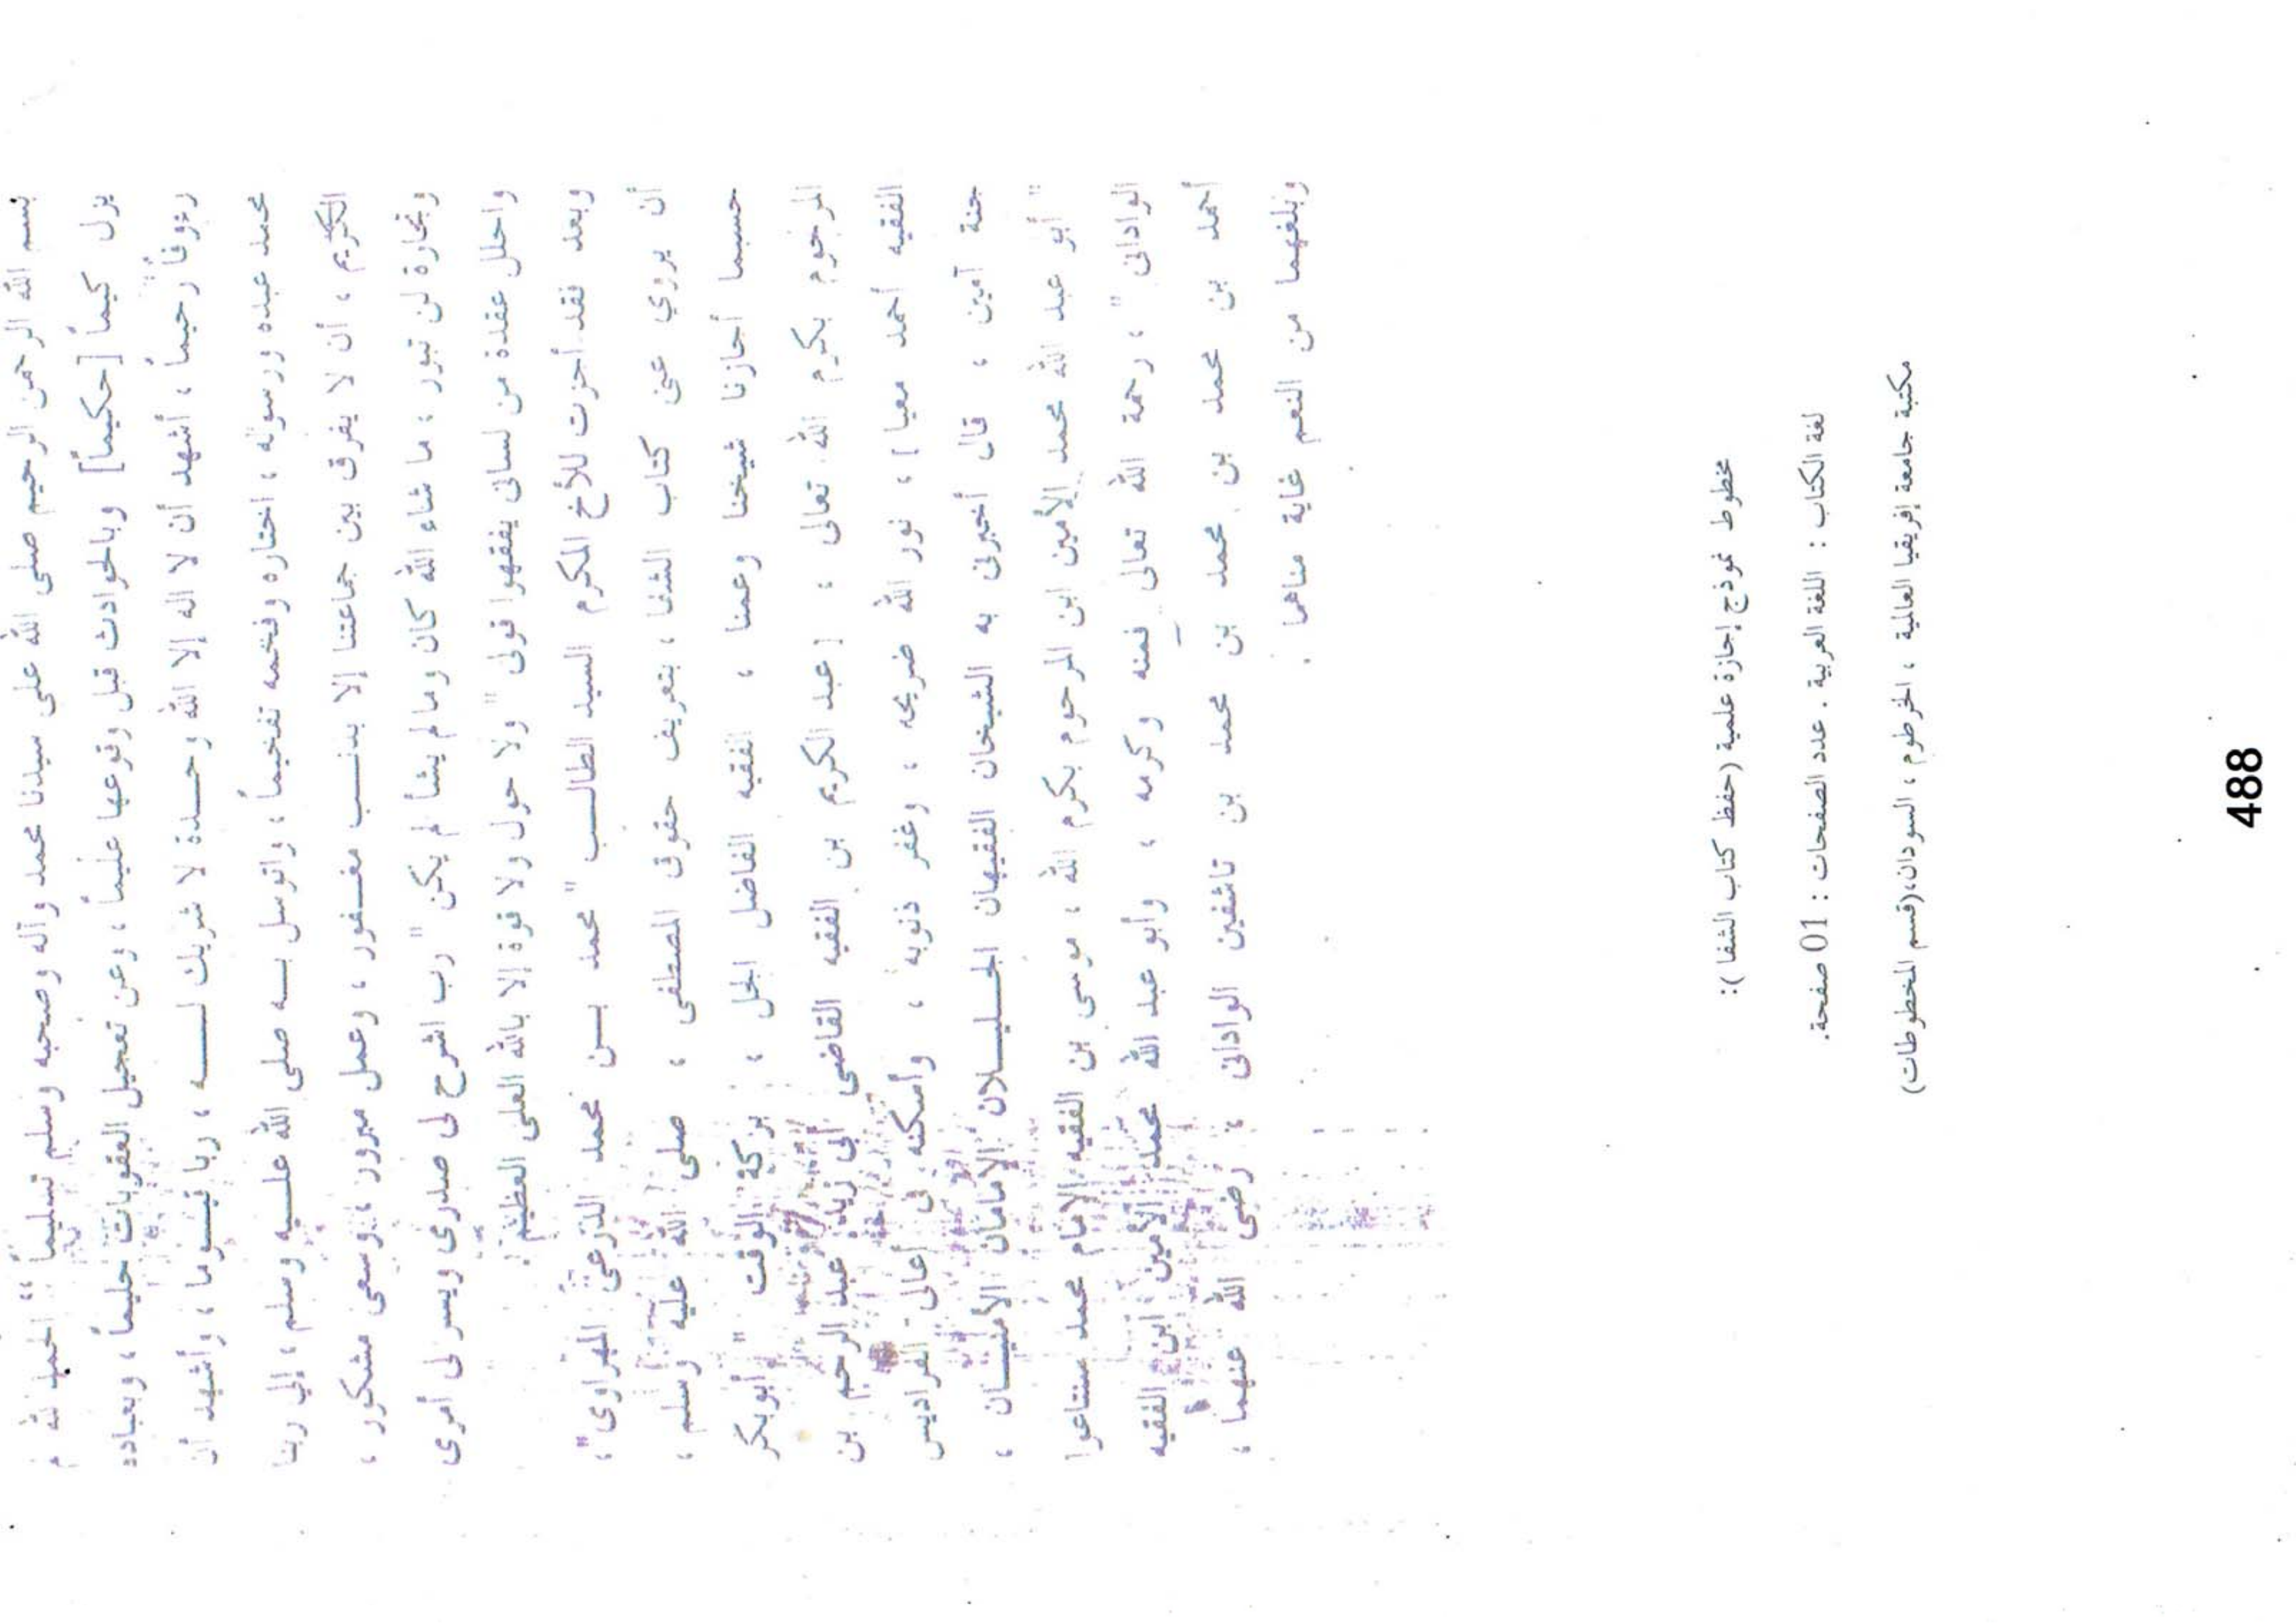 بسم الله الرحمن الرحيم صلى الله على سيدنا محمد وآله وصحبه وسلم تسليماً " الحمد لله م
يزل كيماً [حكيماً] وبالحوادث قبل وقوعها عليماً ، وعن تعجيل العقوبات حليماً ، وبعباده
رءوفاً رحيماً ، أشهد أن لا اله إلا الله وحدة لا شريك له ، ربا قيوما ، وأشهد أن
محمد عبده ورسوله ، اختاره وفخمه تفخيماً ، واتوسل به صلى الله عليه وسلم ، إلي ربنا
الكريم ، أن لا يفرق بين جماعتنا إلا بدنب مغفور ، وعمل مبرور ، وسعى مشكور ،
وتجارة لن تبور ، ما شاء الله كان وما لم يشأ لم يكن " رب اشرح لى صدرى ويسر لى أمرى
واحلل عقدة من لسانى يفقهوا قولى " ولا حول ولا قوة إلا بالله العلى العظيم .
وبعد فقد أجزت للأخ المكرم السيد الطالب " محمد بن محمد الدرعى المهراوى" ،
أن يروي عنى كتاب الشفا ، بتعريف حقوق المصطفى ، صلى الله عليه وسلم ،
حسبما أجازنا شيخنا وعمنا ، الفقيه الفاضل الجل ، بركة الوقت " أبوبكر
المرحوم بكرم الله تعالى : [عبد الكريم بن الفقيه القاضى أبى زيد عبد الرحيم بن
الفقيه أحمد معيا] ، نور الله ضريحه ، وغفر ذنوبه ، وأسكنه فى أعالى الفراديس
جنة آمين ، قال أخبرنى به الشيخان الفقيهان الجليلان الإمامان الأمينان ،
"أبو عبد الله محمد الأمين ابن المرحوم بكرم الله ، موسى بن الفقيه الإمام محمد سنتاعوا
الوادانى " ، رحمة الله تعالى فمنه وكرمه ، وأبو عبد الله محمد الأمين ابن الفقيه
أحمد بن محمد بن محمد بن محمد بن تاشفين الوادانى ، رضى الله عنهما ،
وبلغهما من النعم غاية مناهما .
مخطوط نموذج إجازة علمية (حفظ كتاب الشفا ):
لغة الكتاب : اللغة العربية . عدد الصفحات : 01 صفحة.
مكتبة جامعة إفريقيا العالمية ، الخرطوم ، السودان،(قسم المخطوطات)
488